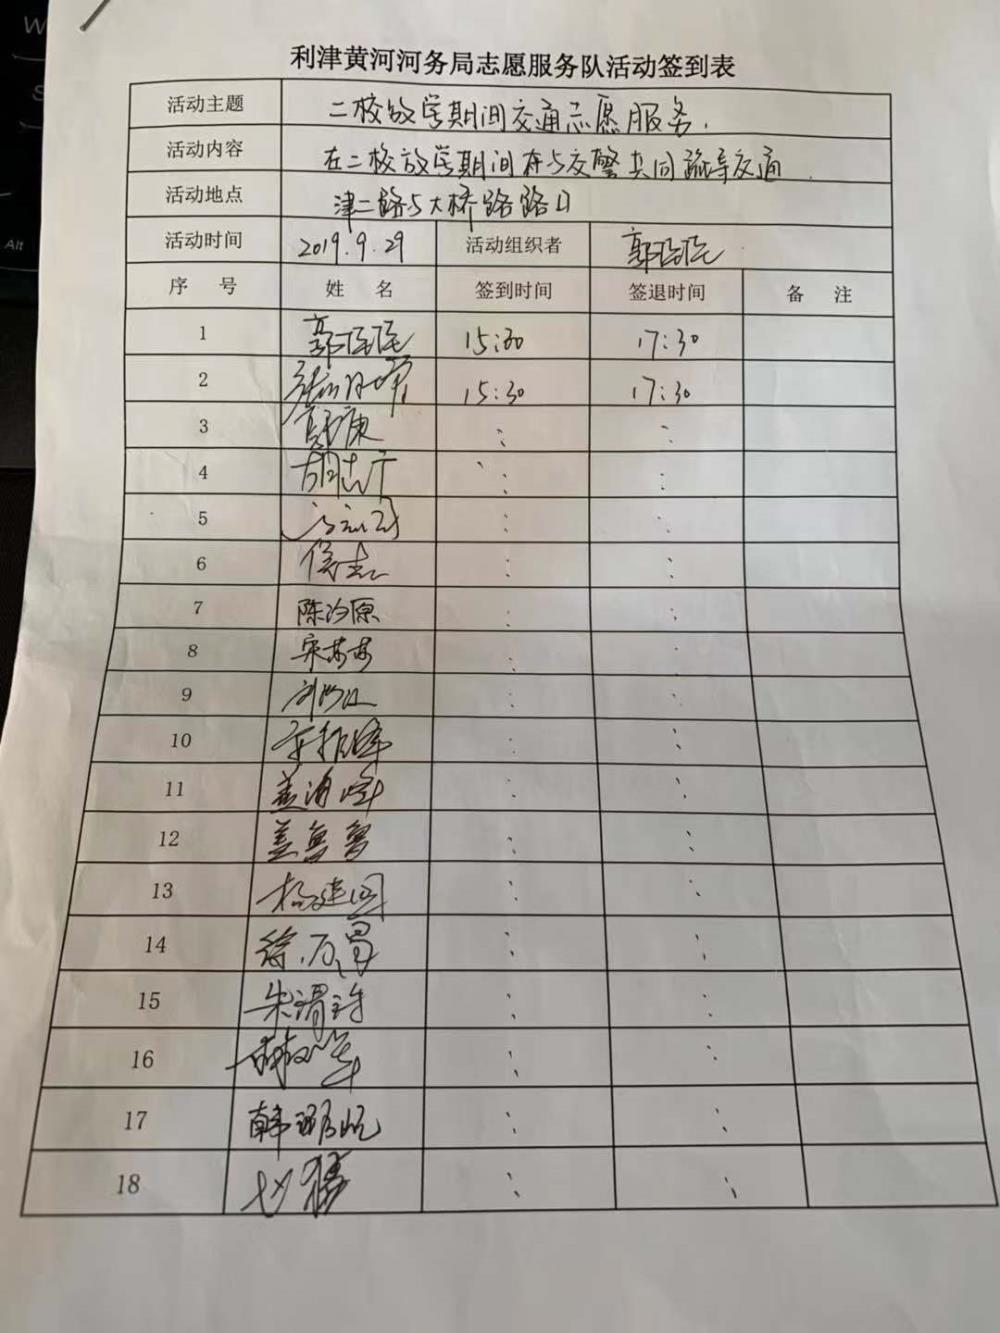 利津黄河河务局志愿服务队活动签到表
活动主题 二校放学期间交通志愿服务.
活动内容 在二校放学期间 与交警共同疏导交通.
活动地点 津二路与大桥路路口
活动时间 2019.9.29 活动组织者 郭
序 号 姓 名 签到时间 签退时间 备 注
1 郭 15:30 17:30
2 15:30 17:30
3 : :
4 胡志广 : :
5 : :
6 : :
7 陈汐原 : :
8 宋苗苗 : :
9 : :
10 : :
11 盖海峰 : :
12 盖鲁鲁 : :
13 杨建国 : :
14 徐万冒 : :
15 : :
16 : :
17 韩 : :
18 : :